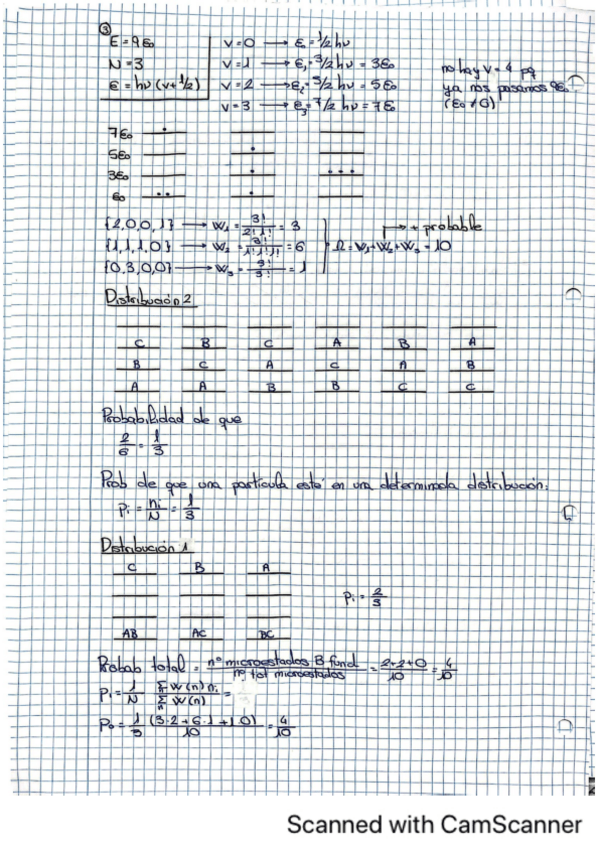 ③
E = 9ε₀
N = 3
ε = hν (v + 1/2)
v = 0 → ε₀ = 1/2 hν
v = 1 → ε₁ = 3/2 hν = 3ε₀
v = 2 → ε₂ = 5/2 hν = 5ε₀
v = 3 → ε₃ = 7/2 hν = 7ε₀
no hay v = 4 pq
ya nos pasamos 9ε₀
(ε₀ ≠ 0)
7ε₀
5ε₀
3ε₀
ε₀
{2,0,0,1} → W₁ = 3!/2!1! = 3
{1,1,1,0} → W₂ = 3!/1!1!1! = 6
{0,3,0,0} → W₃ = 3!/3! = 1
→ + probable
Ω = W₁ + W₂ + W₃ = 10
Distribución 2
C B C A B A
B C A C A B
A A B B C C
Probabilidad de que
2/6 = 1/3
Prob de que una partícula esté en una determinada distribución:
Pᵢ = nᵢ/N = 1/3
Distribución 1
C B A
AB AC BC
Pᵢ = 2/3
Probab total = nº microestados B fund / nº tot microestados = 2+2+0/10 = 4/10
Pᵢ = 1/N Σ W(n) nᵢ / Σ W(n) =
P₀ = 1/3 (3·2 + 6·1 + 1·0)/10 = 4/10
Scanned with CamScanner